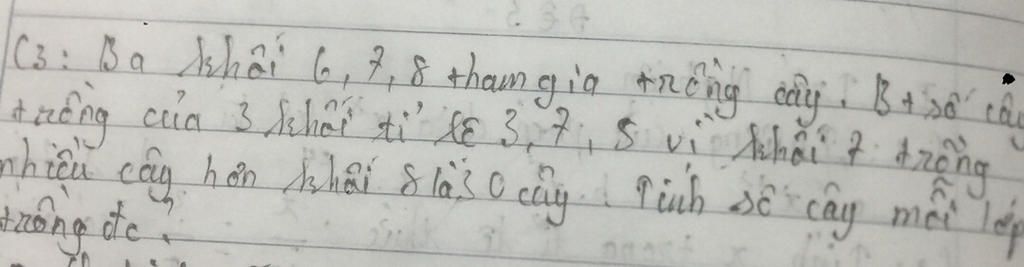 C3: Ba khối 6, 7, 8 tham gia trồng cây. Bt số cây
trồng của 3 khối tỉ lệ 3, 7, 5 vì khối 7 trồng
nhiều cây hơn khối 8 là 30 cây. Tính số cây mỗi lớp
trồng đc?